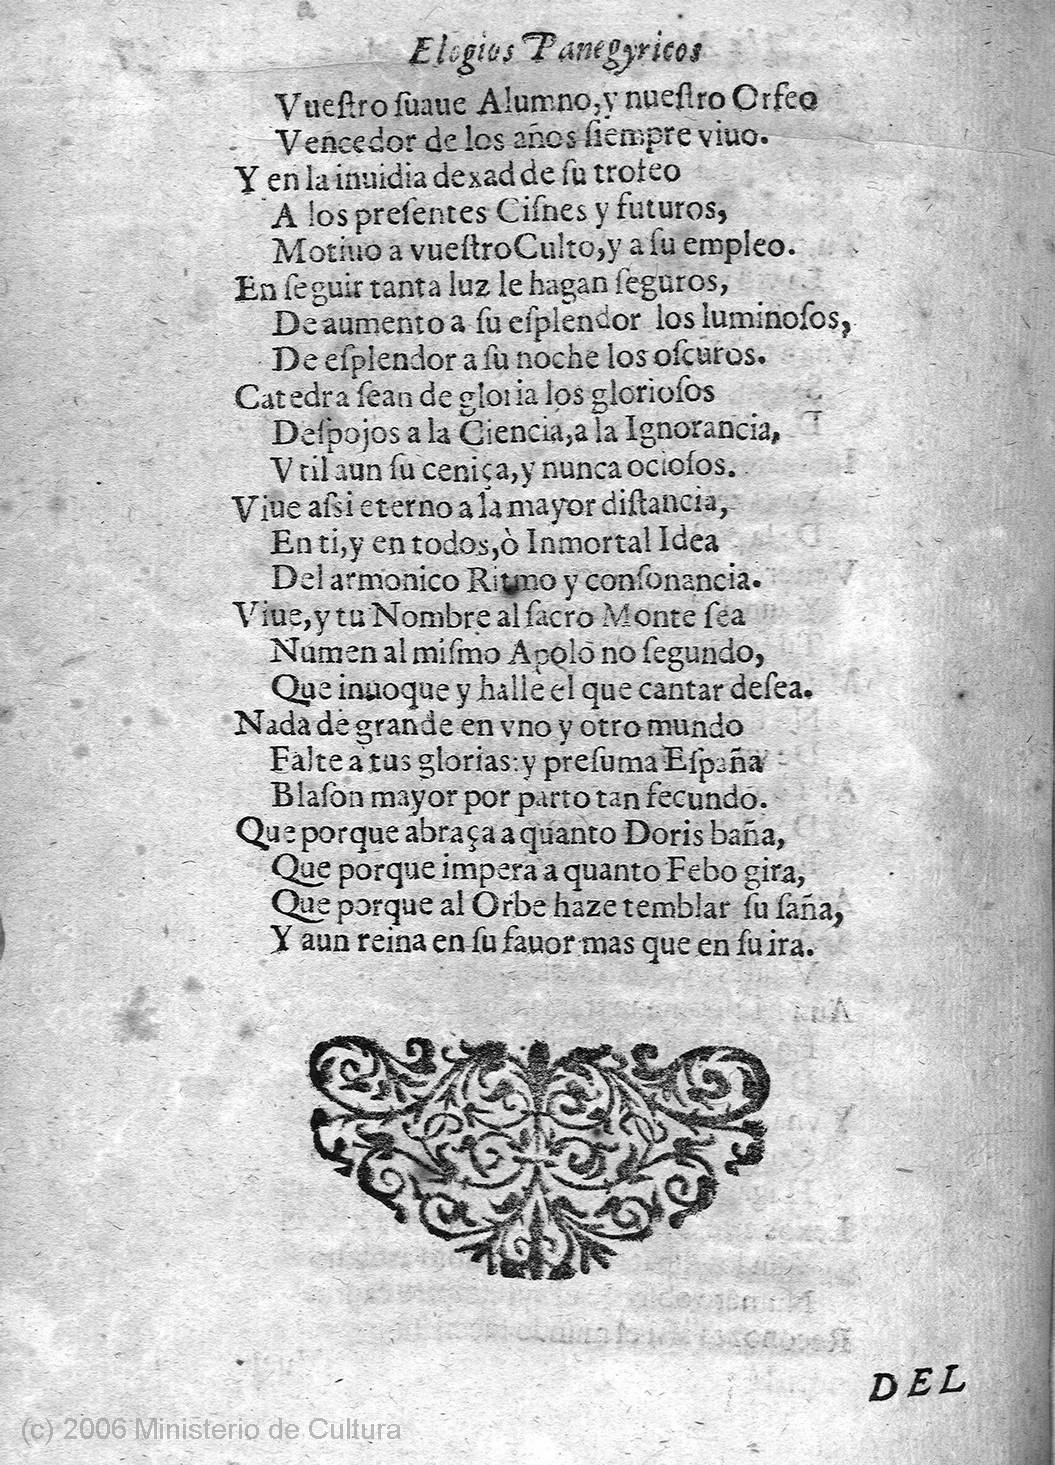 Elogios Panegyricos
Vueſtro ſuaue Alumno, y nueſtro Orfeo
Vencedor de los años ſiempre viuo.
Y en la inuidia dexad de ſu trofeo
A los preſentes Ciſnes y futuros,
Motiuo a vueſtro Culto, y a ſu empleo.
En ſeguir tanta luz le hagan ſeguros,
De aumento a ſu eſplendor los luminoſos,
De eſplendor a ſu noche los oſcuros.
Catedra ſean de gloria los glorioſos
Deſpojos a la Ciencia, a la Ignorancia,
Vtil aun ſu ceniça, y nunca ocioſos.
Viue aſsi eterno a la mayor diſtancia,
En ti, y en todos, ò Inmortal Idea
Del armonico Ritmo y conſonancia.
Viue, y tu Nombre al ſacro Monte ſea
Numen al miſmo Apolo no ſegundo,
Que inuoque y halle el que cantar deſea.
Nada de grande en vno y otro mundo
Falte a tus glorias: y preſuma Eſpaña
Blaſon mayor por parto tan fecundo.
Que porque abraça a quanto Doris baña,
Que porque impera a quanto Febo gira,
Que porque al Orbe haze temblar ſu ſaña,
Y aun reina en ſu fauor mas que en ſu ira.
DEL
(c) 2006 Ministerio de Cultura